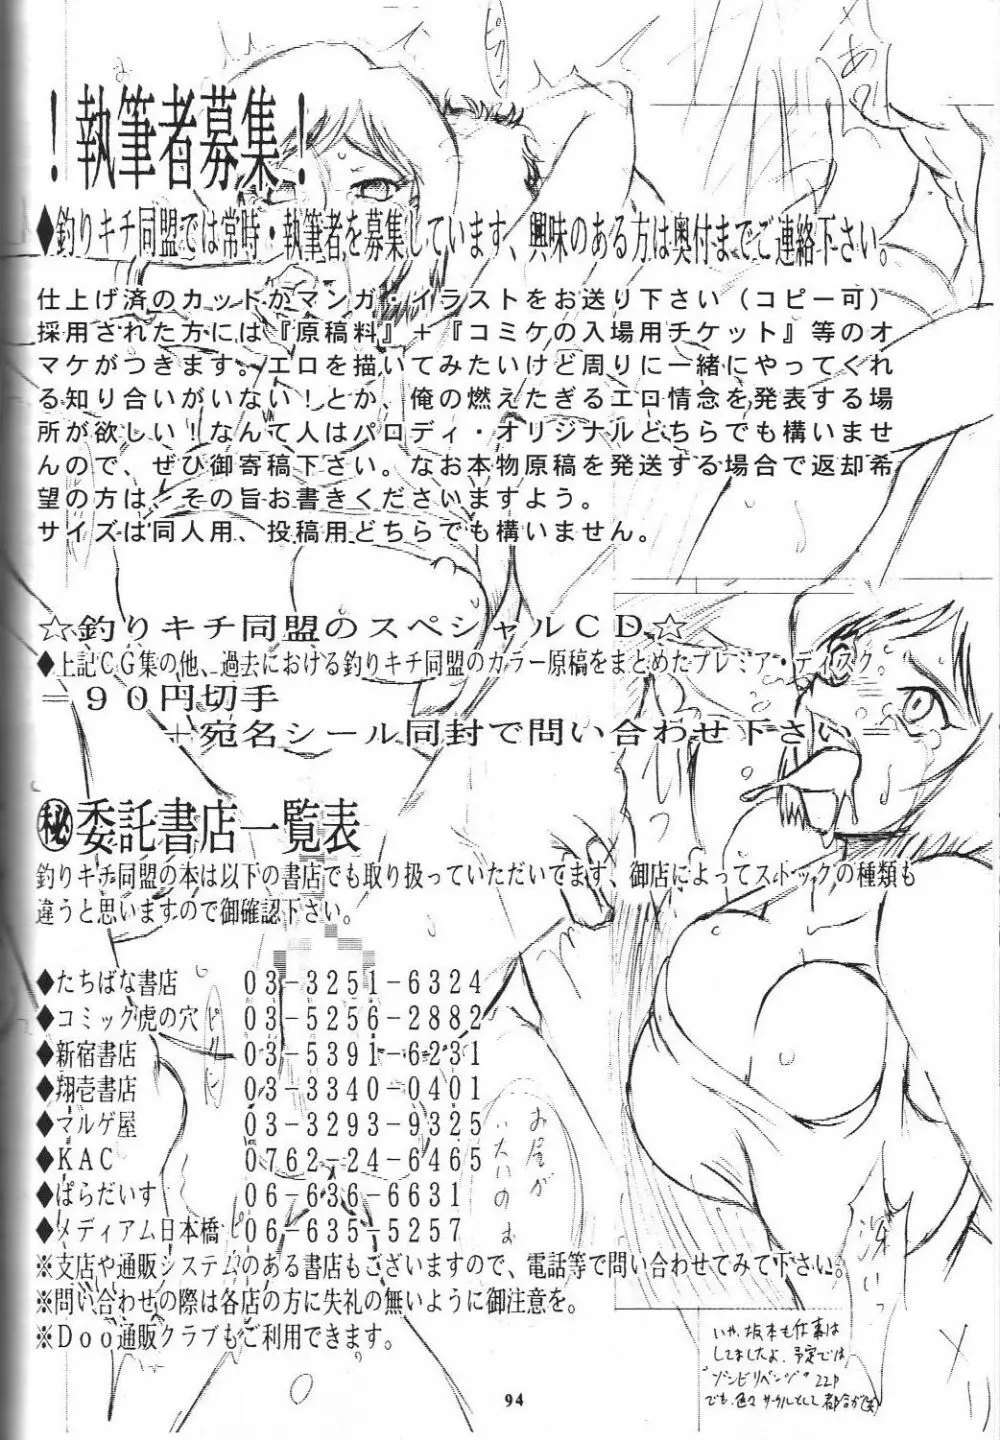 ！執筆者募集！
◆釣りキチ同盟では常時・執筆者を募集しています、興味のある方は奥付までご連絡下さい。
仕上げ済のカットかマンガ・イラストをお送り下さい（コピー可）
採用された方には『原稿料』＋『コミケの入場用チケット』等のオ
マケがつきます。エロを描いてみたいけど周りに一緒にやってくれ
る知り合いがいない！とか、俺の燃えたぎるエロ情念を発表する場
所が欲しい！なんて人はパロディ・オリジナルどちらでも構いませ
んので、ぜひ御寄稿下さい。なお本物原稿を発送する場合で返却希
望の方は、その旨お書きくださいますよう。
サイズは同人用、投稿用どちらでも構いません。
☆釣りキチ同盟のスペシャルＣＤ☆
◆上記ＣＧ集の他、過去における釣りキチ同盟のカラー原稿をまとめたプレミア・ディスク
＝９０円切手
＋宛名シール同封で問い合わせ下さい＝
㊙委託書店一覧表
釣りキチ同盟の本は以下の書店でも取り扱っていただいてます、御店によってストックの種類も
違うと思いますので御確認下さい。
◆たちばな書店 ０３－３２５１－６３２４
◆コミック虎の穴 ０３－５２５６－２８８２
◆新宿書店 ０３－５３９１－６２３１
◆翔壱書店 ０３－３３４０－０４０１
◆マルゲ屋 ０３－３２９３－９３２５
◆ＫＡＣ ０７６２－２４－６４６５
◆ぱらだいす ０６－６３６－６６３１
◆メディアム日本橋 ０６－６３５－５２５７
※支店や通販システムのある書店もございますので、電話等で問い合わせてみて下さい。
※問い合わせの際は各店の方に失礼の無いように御注意を。
※Ｄｏｏ通販クラブもご利用できます。
おしりが
いたいのぉ
深いっ
いや、坂本も仕事は
してましたよ、予定では
"ゾンビリベンジ" 22P
でも、色々サークルとして都合が(笑)
94